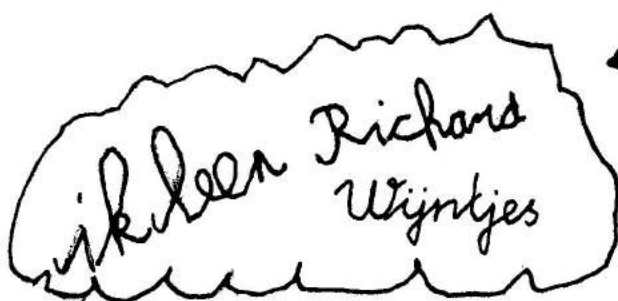 ik ben Richard
Wijntjes